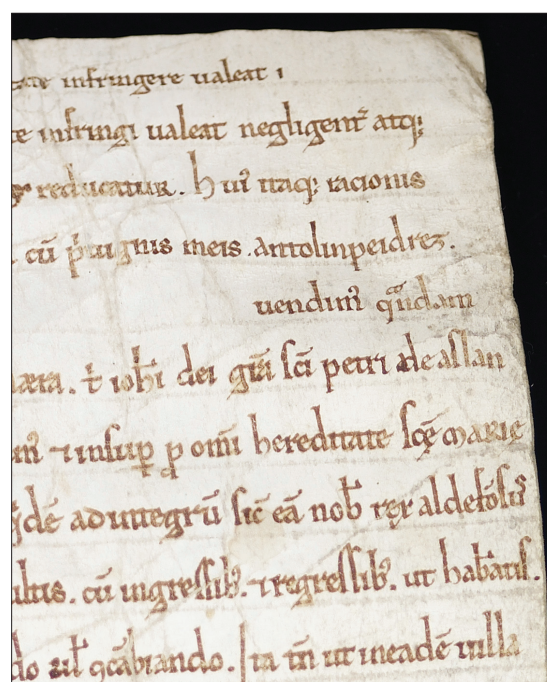 infringere ualeat ı
te infringi ualeat negligent̃ atq;
reducatur. huı᷒ itaq; racionis
cū p̄uignis meis. antolinpeidrez.
uendim᷒ q̃ndam
. ⁊ ioh̄i dei gr̄a sc̄i petri de aslan
⁊ insup̱ ꝓ om̄i hereditate sc̄ę marię
adintegrū sic̄ eā nob̄ rex aldefōsu᷒
ultis. cū ingressib᷒. ⁊ regressib᷒. ut hab̄atis.
do ꝯcābiando. ita tn̄ ut ineadē uilla